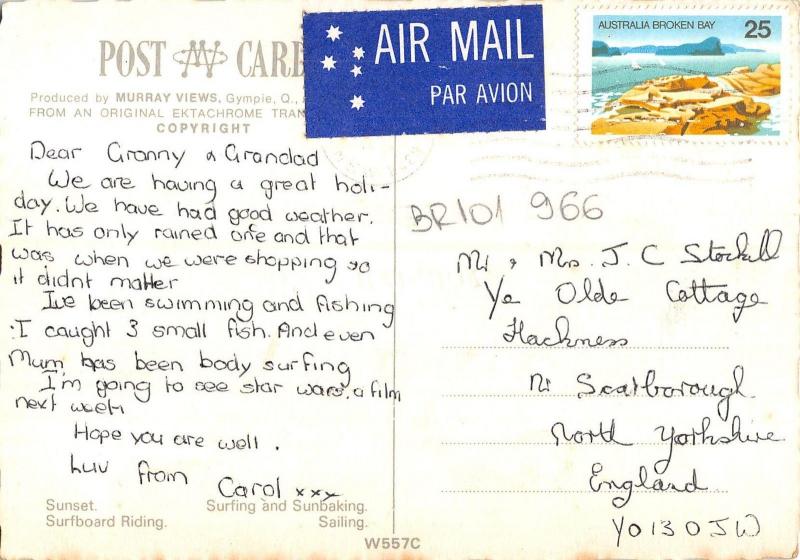 POST CARD
Produced by MURRAY VIEWS, Gympie, Q.,
FROM AN ORIGINAL EKTACHROME TRAN
COPYRIGHT
AIR MAIL
PAR AVION
AUSTRALIA BROKEN BAY 25
Dear Granny & Grandad
We are having a great holi-
day. We have had good weather.
It has only rained one and that
was when we were shopping so
it didnt matter
Ive been swimming and fishing
I caught 3 small fish. And even
Mum has been body surfing
I'm going to see star wars, a film
next week
Hope you are well.
Luv from
Carol xxx
BR101 966
Mr & Mrs. J. C Stockill
Ye Olde Cottage
Hackness
Nr Scarborough
North Yorkshire
England
YO13 0JW
Sunset. Surfing and Sunbaking.
Surfboard Riding. Sailing.
W557C